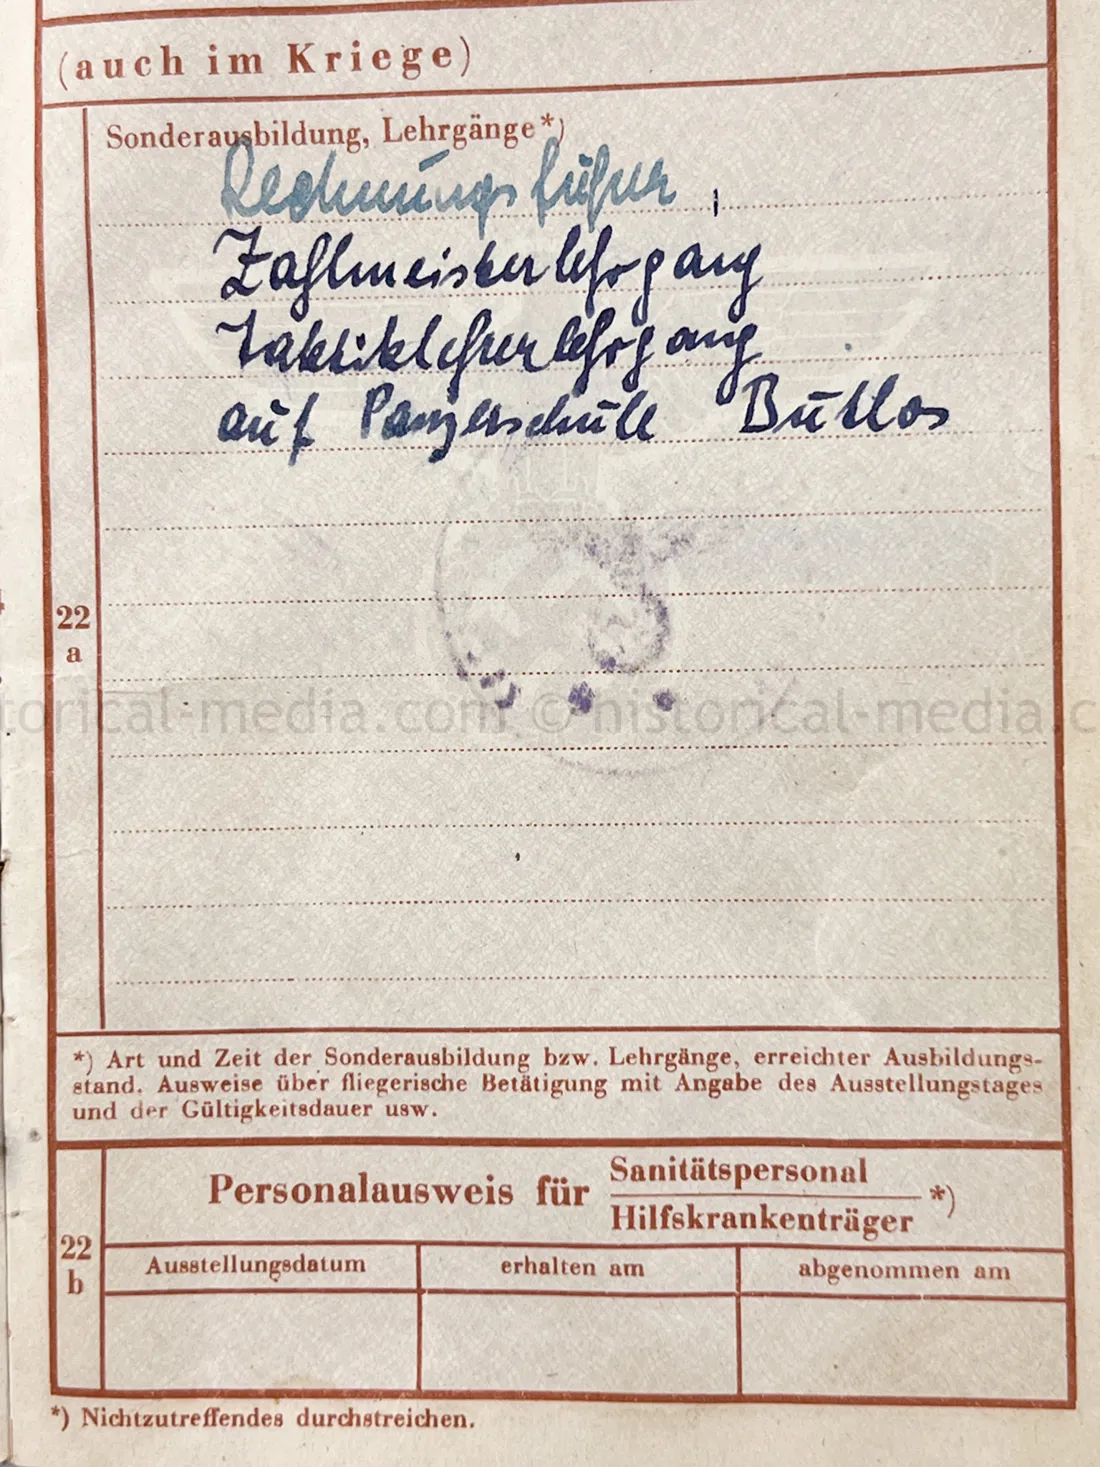 (auch im Kriege)
Sonderausbildung, Lehrgänge*)
Rechnungsführer,
Zahlmeisterlehrgang
Taktiklehrerlehrgang
auf Panzerschule Putlos
22
a
torical-media.com © historical-media.c
*) Art und Zeit der Sonderausbildung bzw. Lehrgänge, erreichter Ausbildungs-
stand. Ausweise über fliegerische Betätigung mit Angabe des Ausstellungstages
und der Gültigkeitsdauer usw.
22
b
Personalausweis für Sanitätspersonal
Hilfskrankenträger *)
Ausstellungsdatum erhalten am abgenommen am
*) Nichtzutreffendes durchstreichen.